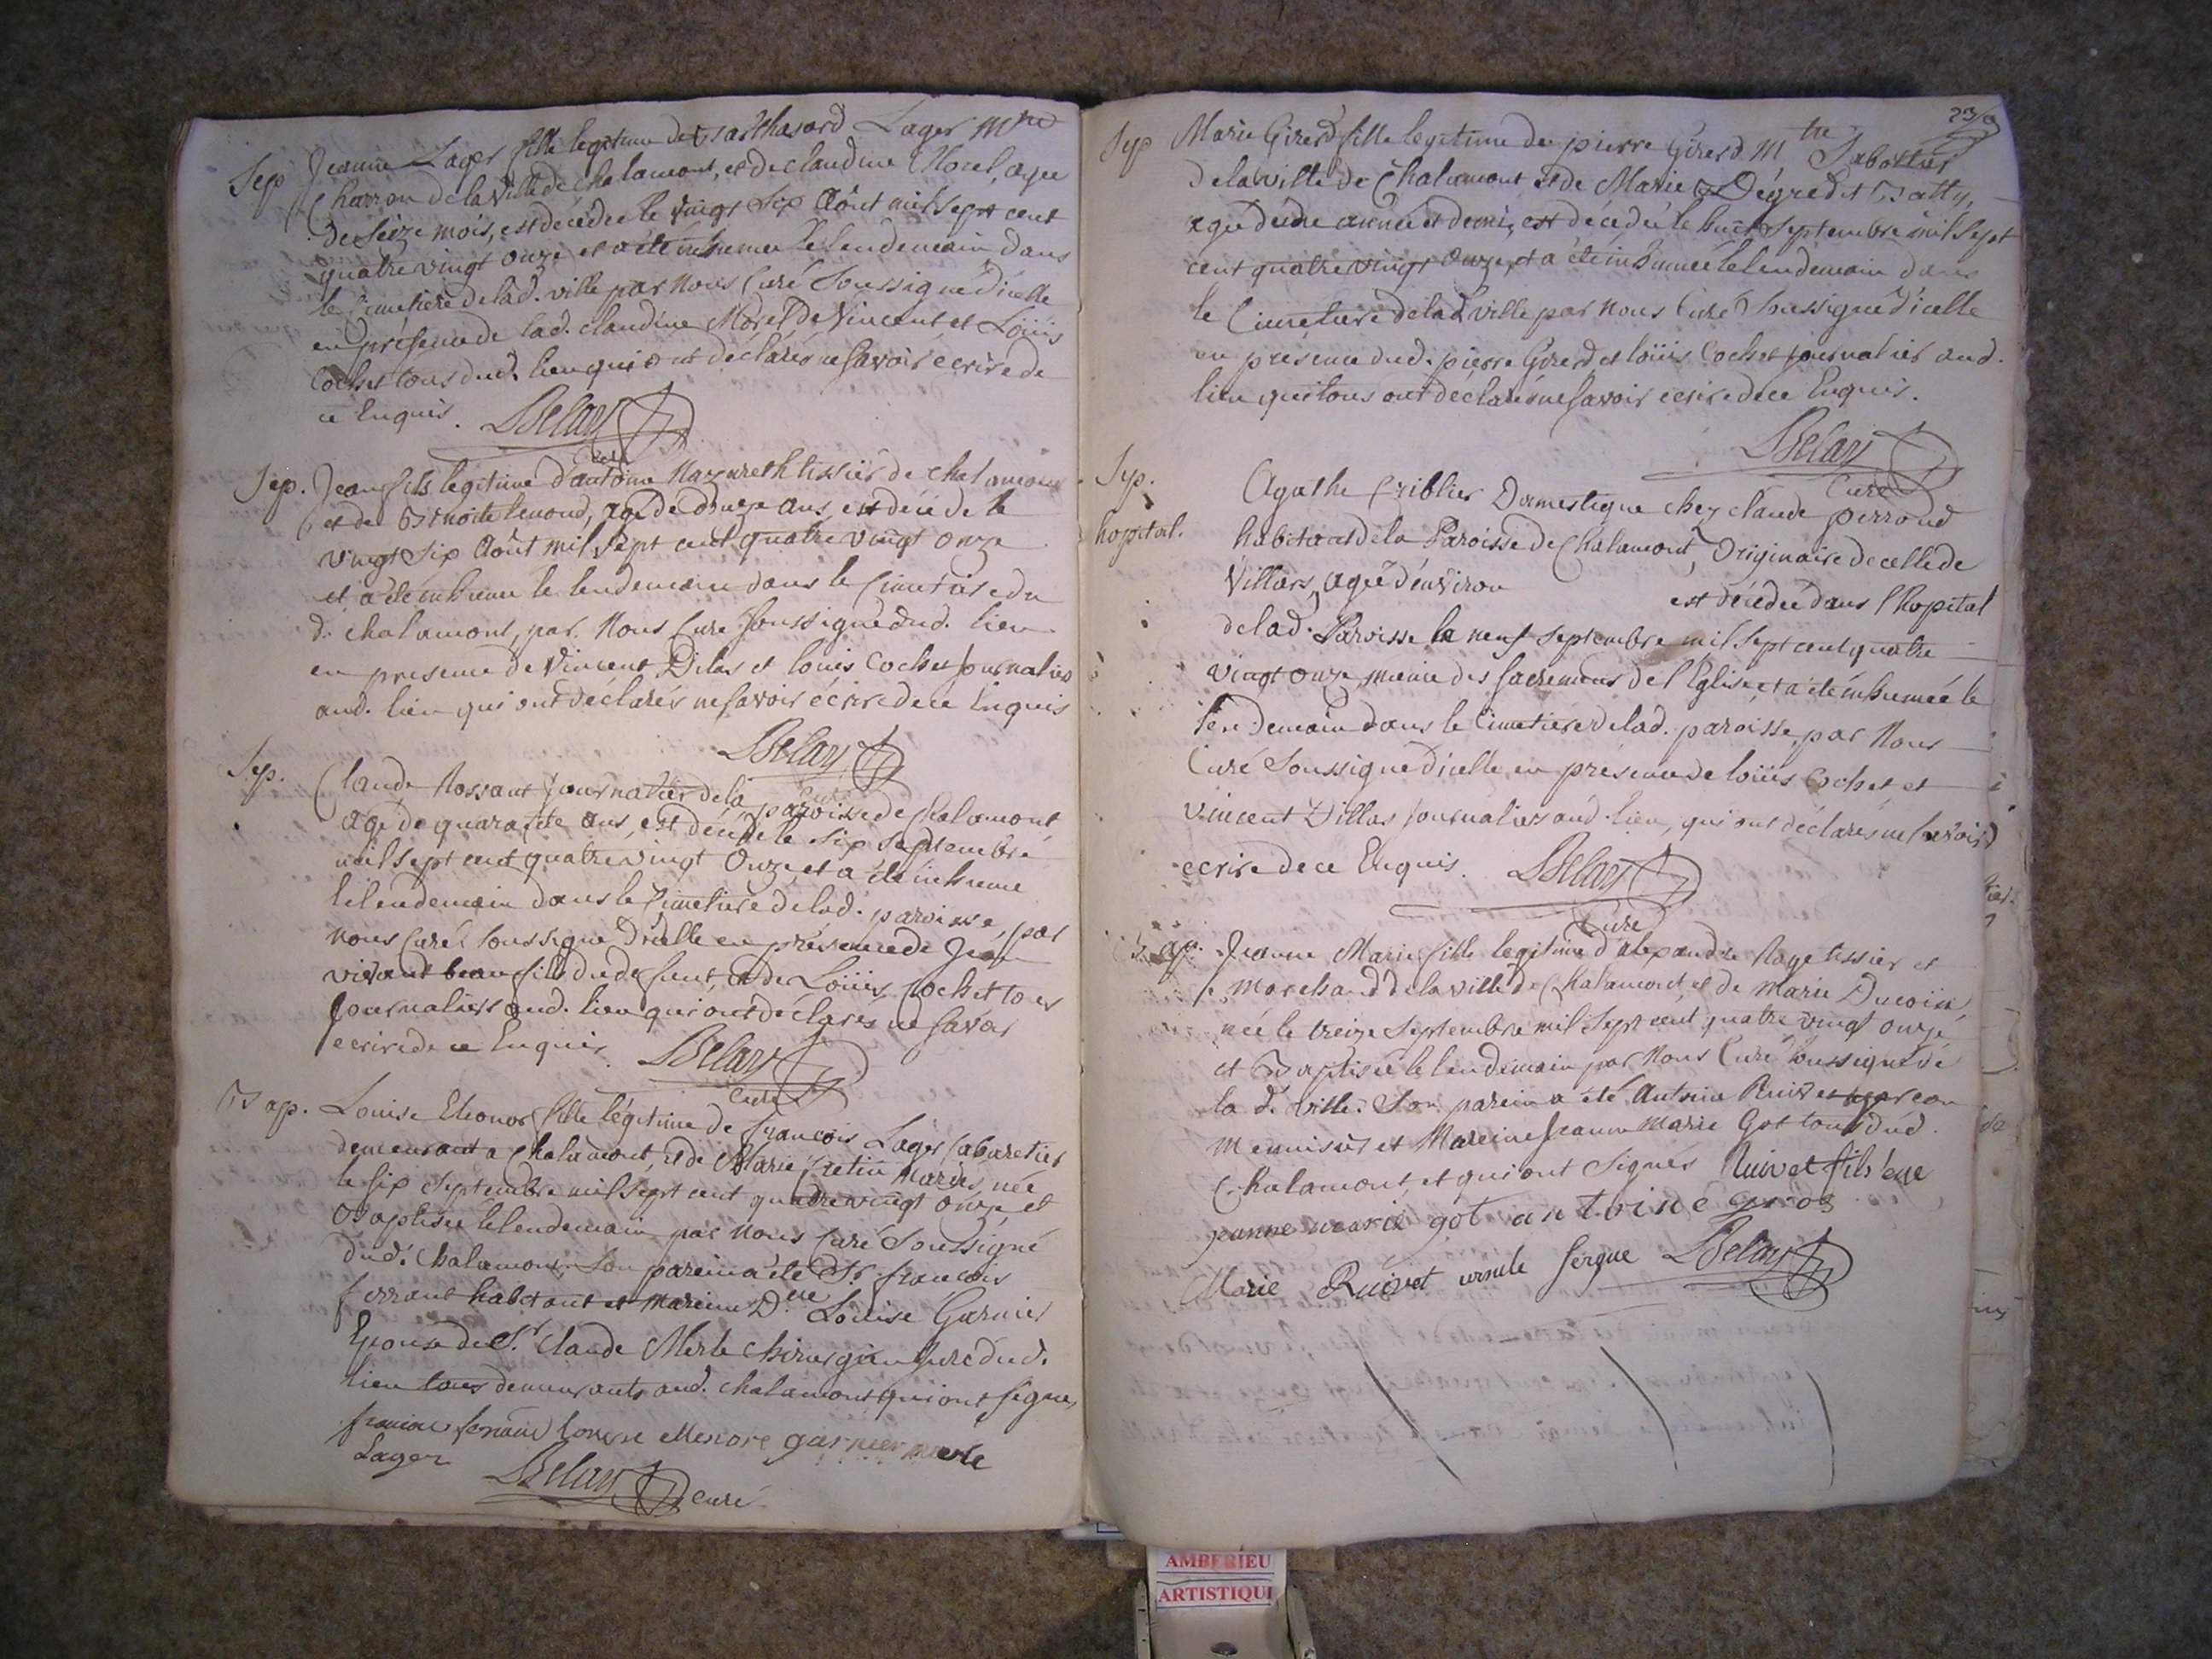 Sep Jeanne Lager fille legitime de Balthasard Lager Mtre
Charron de la Ville de Chalamont, et de claudine Morel, agée
de Seize mois, est décédée le vingt Six Août mil sept cent
quatre vingt onze et a été inhumée le lendemain dans
le Cimetiere de lad. ville par Nous Curé Soussigné d'icelle
en présence de lad. claudine Morel de Vincent et Loüis
Cochet tous dud. lieu qui ont déclarés ne savoir écrire de
ce Enquis. Belay
Curé
Sep. Jean fils legitime d'antoine Nazareth tissier de chalamont
et de Benoite , agé de douze ans est décédé le
vingt Six Août mil sept cent quatre vingt onze
et a été inhumé le lendemain dans le Cimetiere du
d. chalamont, par Nous Curé soussigné dud. lieu
en presence de Vincent Dilas et louis Cochet journalier
aud. lieu qui ont déclarés ne savoir écrire de ce Enquis
Belay
Curé
Sep. Claude Rossant journalier de la paroisse de chalamont
agé de quarante ans, est décédé le six septembre
mil sept cent quatre vingt Onze, et a été inhumé
le lendemain dans le Cimetiere de lad. paroisse, par
nous Curé soussigné d'icelle en présence de Jean
vivant beau fils du defunt, et de Loüis Cochet tous
journaliers aud. lieu qui ont déclarés ne savoir
ecrire de ce Enquis. Belay
Curé
Bap. Louise Eleonor fille légitime de françois Lager Cabaretier
demeurant a Chalamont, et de Marie Cretin Mariés, née
le six septembre mil sept cent quatre vingt onze et
Baptisée le lendemain par nous Curé Soussigné
dud. Chalamont. Son parein a été Sr. françois
ferrant habitant et mareine D.lle Louise Garnier
Epouse de Sr. Claude Merle chirurgien juré dud.
lieu tous demeurants aud. chalamont qui ont signés
louise garnier merle
Lager Belay curé
23/a
Sep Marie Girerd fille legitime de pierre Girerd Mtre Sabottier
de la ville de Chalamont et de Marie Dégredit Batty,
agée d'une année et demi, est décédée le huit septembre mil sept
cent quatre vingt Onze, et a été inhumée le lendemain dans
le Cimetiere de lad. ville par nous Curé Soussigné d'icelle
en présence dud. pierre Girerd et loüis Cochet journalier aud.
lieu qui tous ont déclarés ne savoir ecrire de ce Enquis.
Belay
Curé
Sep.
hopital.
Agathe Criblier Domestique chez claude perroud
habitant de la Paroisse de Chalamont, Originaire de celle de
Villars, agée d'environ est décédée dans l'hopital
de lad. Paroisse le neuf septembre mil sept cent quatre
vingt onze munie des sacremens de l'Eglise et a été inhumée le
lendemain dans le Cimetiere de lad. paroisse, par Nous
Curé Soussigné d'icelle en présence de loüis Cochet et
vincent Dillas journaliers aud. lieu, qui ont déclarés ne savoir
ecrire de ce Enquis. Belay
Curé
Bap. Jeanne Marie fille legitime d'alexandre Noge tissier et
marchand de la ville de Chalamont, et de Marie Ducoin,
née le treize Septembre mil sept cent quatre vingt onze
et Baptisée le lendemain par Nous Curé soussigné de
la d. ville. Son parein a été Antoine Ruivet garcon
Menuisier et Mareine Jeanne Marie Got tous dud.
Chalamont, et qui ont signés Ruivet fils
janne marie got antoine gros
Marie Ruivet ursule sergue Belay
AMBERIEU
ARTISTIQU